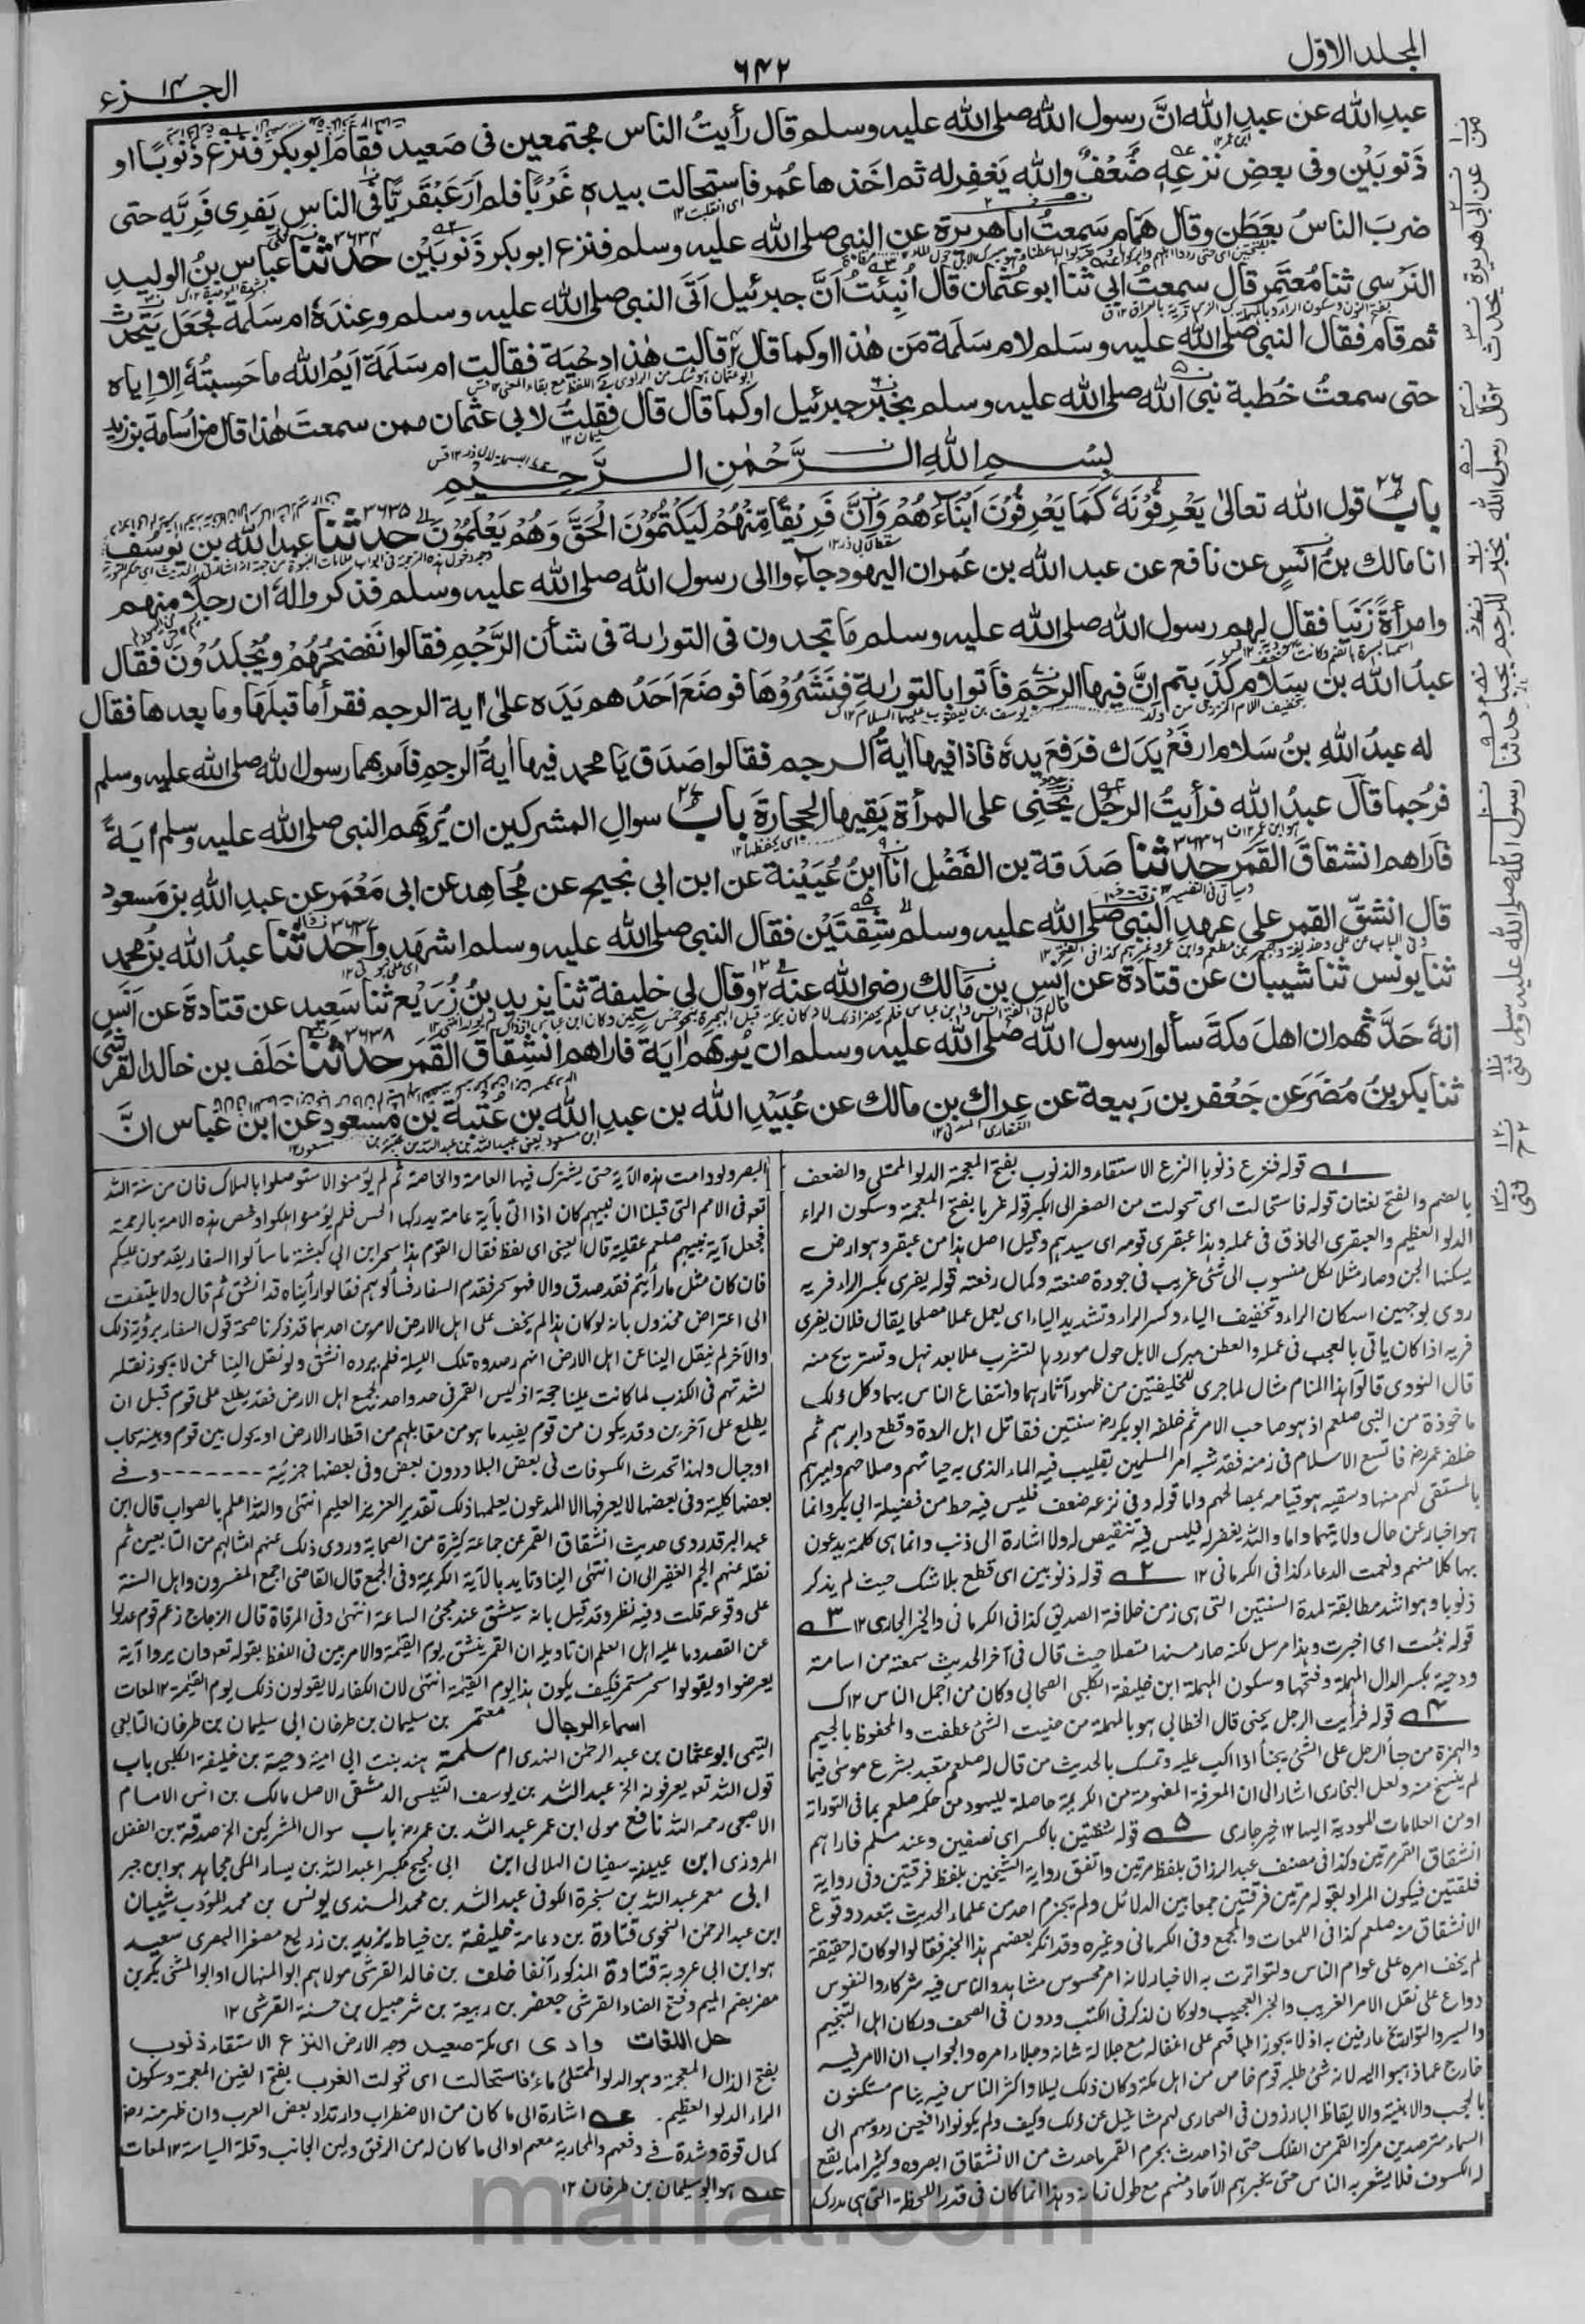 المجلد الاوّل
٦٤٢
الجزء ١٤
عبدِ الله عن عبدِ الله انَّ رسول الله صلى الله عليه وسلم قال رأيتُ الناس مجتمعين فى صَعيد فقام ابوبكر فنزع ذَنوبًا او
ذَنوبَيْن وفى بعضِ نزعهٖ ضَعْفٌ والله يَغفِر له ثم اخذها عُمر فاستحالت بيدهٖ غَرْبًا فلم ارَ عَبْقَريًّا فى الناس يَفرِى فَرِيَّه حتى
ضربَ الناسُ بعَطَن وقال همّام سمعتُ ابا هريرة عن النبى صلى الله عليه وسلم فنزع ابوبكر ذَنوبَيْن حدثنا عباس بنُ الوليدِ
النَرْسى ثنا مُعتَمر قال سمعتُ ابى ثنا ابو عُثمان قال اُنبِئتُ انَّ جبرئيل اَتَى النبى صلى الله عليه وسلم وعِندَهٗ ام سَلَمة فجَعَل يتحدث
ثم قام فقال النبى صلى الله عليه وسلم لام سَلَمة مَن هٰذا او كما قال قالت هٰذا دِحْيَة فقالت ام سَلَمَة اَيمُ الله ما حَسِبتُهٗ اِلا اِياه
حتى سمعتُ خُطبة نبى الله صلى الله عليه وسلم بخبر جبرئيل او كما قال قال فقلتُ لابى عثمان ممن سمعتَ هٰذا قال من اُسامة بن زيد
بِسْمِ اللهِ الرَّحْمٰنِ الرَّحِيْمِ
باب قول الله تعالىٰ يَعْرِفُوْنَهٗ كَمَا يَعْرِفُوْنَ اَبْنَاءَهُمْ وَاِنَّ فَرِيْقًا مِّنْهُمْ لَيَكْتُمُوْنَ الْحَقَّ وَهُمْ يَعْلَمُوْنَ حدثنا عبد الله بن يوسُف
انا مالك بنُ انَسٍ عن نافع عن عبد الله بن عُمر ان اليهود جاءوا الى رسول الله صلى الله عليه وسلم فذكروا لهٗ ان رجلًا منهم
وامرأةً زَنَيا فقال لهم رسول الله صلى الله عليه وسلم ما تجدون فى التوراىة فى شأن الرَّجْمِ فقالوا نَفضَحُهُمْ ويُجْلَدُوْنَ فقال
عبدُ الله بن سَلام كذَبتم انَّ فيها الرجمَ فأتوا بالتوراىةِ فنَشَرُوْهَا فوضَعَ اَحَدُهم يَدَه علىٰ اٰية الرجم فقرأ ما قبلَها وما بعدها فقال
له عبدُ اللهِ بنُ سَلام ارفَعْ يدَك فرَفعَ يده فاذا فيها اٰيةُ الرجم فقالوا صَدَق يا محمد فيها اٰيةُ الرجمِ فاَمر بهما رسول الله صلى الله عليه وسلم
فرُجِما قال عبدُ الله فرأيتُ الرجُل يَحْنِى على المرأة يَقِيها الحجارةَ باب سوالِ المشركين ان يُرِيَهم النبى صلى الله عليه وسلم اٰيَةً
فاَراهم انشقاقَ القَمَر حدثنا صَدَقة بن الفَضْلِ انا ابنُ عُيَيْنة عن ابن ابى نجيح عن مُجاهِد عن ابى مَعْمَر عن عبدِ اللهِ بن مَسعود
قال انشقّ القمر على عهدِ النبى صلى الله عليه وسلم شِقتَيْن فقال النبى صلى الله عليه وسلم اشهَدوا حدثنا عبدُ الله بنُ محمد
ثنا يونس ثنا شيبان عن قتادة عن انَسِ بن مَالك رضى الله عنه ح وقال لى خليفة ثنا يزيد بنُ زُرَيع ثنا سَعِيد عن قتادة عن انَس
انهٗ حَدَّثهم ان اهلَ مكةَ سألوا رسول الله صلى الله عليه وسلم ان يُرِيَهم اٰية فاَراهم انشِقاقَ القَمَر حدثنا خَلَف بن خالد القرشى
ثنا بكر بنُ مُضَر عن جَعْفر بن رَبيعة عن عِراك بن مالك عن عُبَيْدِ الله بن عبدِ الله بن عُتبة بن مسعود عن ابن عباس انَّ
قوله فنزع ذنوبا النزع الاستقاء والذنوب بفتح المعجمة الدلو الممتلى والضعف
بالضم والفتح لغتان قوله فاستحالت اى تحولت من الصغر الى الكبر قوله غربا بفتح المعجمة وسكون الراء
الدلو العظيم والعبقرى الحاذق فى عمله وهذا عبقرى قومه اى سيدهم وقيل اصل هذا من عبقر وهو ارض
يسكنها الجن وصار مثلا لكل منسوب الى شئ غريب فى جودة صنعته وكمال رفعته قوله يفرى بكسر الراء فريه
روى بوجهين اسكان الراء وتخفيف الياء وكسر الراء وتشديد الياء اى يعمل عملا مصلحا يقال فلان يفرى
فريه اذا كان ياتى بالعجب فى عمله والعطن مبرك الابل حول موردها لتشرب عللا بعد نهل وتستريح منه
قال النووى قالوا هذا المنام مثال لما جرى للخليفتين من ظهور آثارهما وانتفاع الناس بهما وكل ذلك
ماخوذة من النبى صلعم اذ هو صاحب الامر ثم خلفه ابوبكر رض سنتين فقاتل اهل الردة وقطع دابرهم ثم
خلفه عمر رض فاتسع الاسلام فى زمنه فقد شبه امر المسلمين بقليب فيه الماء الذى به حياتهم وصلاحهم واميرهم
بالمستقى لهم منها وسقيه هو قيامه بمصالحهم واما قوله وفى نزعه ضعف فليس فيه حط من فضيلة ابى بكر وانما
هو اخبار عن حال ولايتهما واما والله يغفر له فليس فيه تنقيص له ولا اشارة الى ذنب وانما هى كلمة يدعون
بها كلامهم ونعمت الدعاء كذا فى الكرمانى ١٢ ٢ قوله ذنوبين اى قطع بلا شك حيث لم يذكر
ذنوبا وهو اشد مطابقة لمدة السنتين التى هى زمن خلافة الصديق كذا فى الكرمانى والخير الجارى ١٢ ٣
قوله نبئت اى اخبرت وهذا مرسل لكنه صار مسندا متصلا حيث قال فى آخر الحديث سمعته من اسامة
ودحية بكسر الدال المهملة وفتحها وسكون المهملة ابن خليفة الكلبى الصحابى وكان من اجمل الناس ١٢ ك
٤ قوله فرأيت الرجل يحنى قال الخطابى هو بالمهملة من حنيت الشئ عطفت والمحفوظ بالجيم
والهمزة من جنأ الرجل على الشئ يجنأ اذا اكب عليه وتمسك بالحديث من قال له صلعم متعبد بشرع موسى فيما
لم ينسخ منه ولعل البخارى اشار الى ان المعرفة المفهومة من الكريمة حاصلة لليهود من حكمه صلعم بما فى التوراة
او من العلامات المودية اليها ١٢ خير جارى ٥ قوله شقتين بالكسر اى نصفين وعند مسلم فاراهم
انشقاق القمر مرتين وكذا فى مصنف عبد الرزاق بلفظ مرتين واتفق رواية الشيخين بلفظ فرقتين وفى رواية
فلقتين فيكون المراد بقوله مرتين فرقتين جمعا بين الدلائل ولم يجزم احد من علماء الحديث بتعدد وقوع
الانشقاق منه صلعم كذا فى اللمعات والمجمع وفى الكرمانى وغيره وقد انكر بعضهم هذا الخبر فقالوا لو كان له حقيقة
لم يخف امره على عوام الناس ولتواترت به الاخبار لانه امر محسوس مشاهد والناس فيه شركاء والنفوس
دواع على نقل الامر الغريب والخبر العجيب ولو كان لذكر فى الكتب ودون فى الصحف ولكان اهل التنجيم
والسير والتواريخ عارفين به اذ لا يجوز اطباقهم على اغفاله مع جلالة شانه وجلاء امره والجواب ان الامر فيه
خارج عما ذهبوا اليه لانه شئ طلبه قوم خاص من اهل مكة وكان ذلك ليلا واكثر الناس فيه ينام مستكنون
بالحجب والابنية والايقاظ البارزون فى الصحارى لهم مشاغيل عن ذلك وكيف ولم يكونوا رافعين رءوسهم الى
السماء مترصدين مركز القمر من الفلك حتى اذا حدث بجرم القمر ما حدث من الانشقاق ابصروه وكثيرا ما يقع
له الكسوف فلا يشعر به الناس حتى يخبرهم الآحاد منهم مع طول زمانه وهذا انما كان فى قدر اللحظة التى هى مدرك
البصر ولو دامت هذه الآية حتى يشترك فيها العامة والخاصة ثم لم يؤمنوا لاستوصلوا بالهلاك فان من سنة الله
تعه فى الامم التى قبلنا ان نبيهم كان اذا اتى بآية عامة يدركها الحس فلم يؤمنوا اهلكوا وخص هذه الامة بالرحمة
فجعل آية نبيهم صلعم عقلية قال العينى اى لفظ فقال القوم هذا سحر ابن ابى كبشة ما سألوا السفار يقدمون عليكم
فان كان مثل ما رأيتم فقد صدق والا فهو سحر فقدم السفار فسألوهم فقالوا رأيناه قد انشق ثم قال ولا يلتفت
الى اعتراض مخذول بانه لو كان هذا لم يخف على اهل الارض لامرين احدهما قد ذكرنا صحة قول السفار برؤية ذلك
والآخر لم ينقل الينا عن اهل الارض انهم رصدوه تلك الليلة فلم يروه انشق ولو نقل الينا عمن لا يجوز نقله
لشدتهم فى الكذب لما كانت علينا حجة اذ ليس القمر فى حد واحد لجميع اهل الارض فقد يطلع على قوم قبل ان
يطلع على آخرين وقد يكون من قوم بضد ما هو من مقابلهم من اقطار الارض او يحول بين قوم وبينه سحاب
او جبال ولهذا تحدث الكسوفات فى بعض البلاد دون بعض وفى بعضها جزئية - - - - - وفى
بعضها كلية وفى بعضها لا يعرفها الا المدعون يعلمها ذلك تقدير العزيز العليم انتهى والله اعلم بالصواب قال ابن
عبد البر قد روى حديث انشقاق القمر عن جماعة كثيرة من الصحابة وروى ذلك عنهم امثالهم من التابعين ثم
نقله عنهم الجم الغفير الى ان انتهى الينا وتايد بالآية الكريمة وفى المجمع قال القاضى اجمع المفسرون واهل السنة
على وقوعه قلت وفيه نظر وقد قيل بانه سيشق عند مجئ الساعة انتهى وفى المرقاة قال الزجاج زعم قوم عدلوا
عن القصد وما عليه اهل العلم ان تاويله ان القمر ينشق يوم القيمة والامر بين فى اللفظ بقوله تعه وان يروا آية
يعرضوا ويقولوا سحر مستمر فكيف يكون هذا يوم القيمة انتهى لان الكفار لا يقولون ذلك يوم القيمة ١٢ لمعات
اسماء الرجال معتمر بن سليمان بن طرخان ابى سليمان بن طرخان التابعى
التيمى ابو عثمان بن عبد الرحمن النهدى ام سلمة هند بنت ابى امية دحية بن خليفة الكلبى باب
قول الله تعه يعرفونه الخ عبد الله بن يوسف التنيسى الدمشقى الاصل مالك بن انس الامام
الاصبحى رحمه الله نافع مولى ابن عمر عبد الله بن عمر رض باب سوال المشركين الخ صدقة بن الفضل
المروزى ابن عيينة سفيان الهلالى ابن ابى نجيح مكبرا عبد الله بن يسار المكى مجاهد هو ابن جبر
ابى معمر عبد الله بن سخبرة الكوفى عبد الله بن محمد المسندى يونس بن محمد المؤدب شيبان
ابن عبد الرحمن النحوى قتادة بن دعامة خليفة بن خياط يزيد بن زريع مصغرا البصرى سعيد
هو ابن ابى عروبة قتادة المذكور آنفا خلف بن خالد القرشى مولاهم ابو المنهال او ابو المثنى بكر بن
مضر بضم الميم وفتح الضاد القرشى جعفر بن ربيعة بن شرحبيل بن حسنة القرشى ١٢
حل اللغات وادى اى مكة صعيد وجه الارض النزع الاستقاء ذنوب
بفتح الذال المعجمة وهو الدلو الممتلئ ماء فاستحالت اى تحولت الغرب بفتح الغين المعجمة وسكون
الراء الدلو العظيم. عه اشارة الى ما كان من الاضطراب وارتداد بعض العرب وان ظهر منه رض
كمال قوة وشدة فى دفعهم والمحاربة معهم او الى ما كان له من الرفق ولين الجانب وقلة السياسة ١٢ لمعات
عه هو ابو سليمان بن طرخان ١٢
manat.com